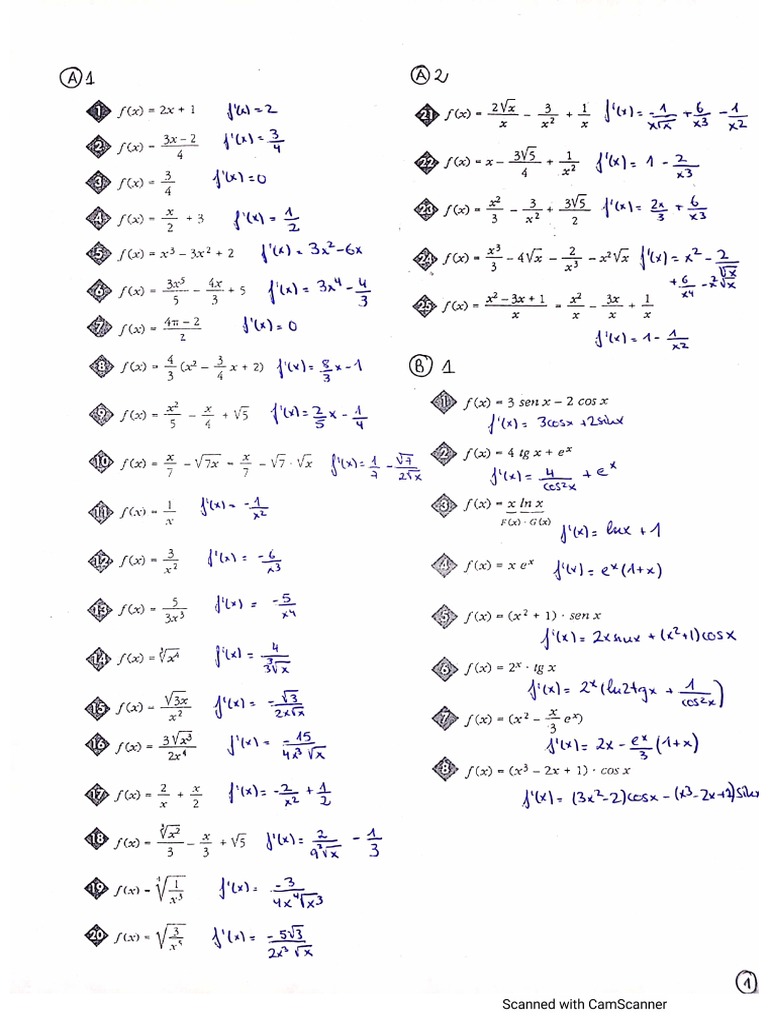 A 1
1 f(x) = 2x + 1 f'(x) = 2
2 f(x) = (3x - 2)/4 f'(x) = 3/4
3 f(x) = 3/4 f'(x) = 0
4 f(x) = x/2 + 3 f'(x) = 1/2
5 f(x) = x³ - 3x² + 2 f'(x) = 3x² - 6x
6 f(x) = 3x⁵/5 - 4x/3 + 5 f'(x) = 3x⁴ - 4/3
7 f(x) = (4π - 2)/2 f'(x) = 0
8 f(x) = 4/3 (x² - 3/4 x + 2) f'(x) = 8/3 x - 1
9 f(x) = x²/5 - x/4 + √5 f'(x) = 2/5 x - 1/4
10 f(x) = x/7 - √7x = x/7 - √7 · √x f'(x) = 1/7 - √7/(2√x)
11 f(x) = 1/x f'(x) = -1/x²
12 f(x) = 3/x² f'(x) = -6/x³
13 f(x) = 5/(3x³) f'(x) = -5/x⁴
14 f(x) = ∛x⁴ f'(x) = 4/(3∛x)
15 f(x) = √3x/x² f'(x) = -√3/(2x√x)
16 f(x) = 3√x³/(2x⁴) f'(x) = -15/(4x³√x)
17 f(x) = 2/x + x/2 f'(x) = -2/x² + 1/2
18 f(x) = ∛x²/3 - x/3 + √5 f'(x) = 2/(9∛x) - 1/3
19 f(x) = ⁴√(1/x³) f'(x) = -3/(4x ⁴√x³)
20 f(x) = √(3/x⁵) f'(x) = -5√3/(2x³√x)
A 2
21 f(x) = 2√x/x - 3/x² + 1/x f'(x) = -1/(x√x) + 6/x³ - 1/x²
22 f(x) = x - 3√5/4 + 1/x² f'(x) = 1 - 2/x³
23 f(x) = x²/3 - 3/x² + 3√5/2 f'(x) = 2x/3 + 6/x³
24 f(x) = x³/3 - 4√x - 2/x³ - x²√x f'(x) = x² - 2/√x
+ 6/x⁴ -
25 f(x) = (x² - 3x + 1)/x = x²/x - 3x/x + 1/x
f'(x) = 1 - 1/x²
B 1
1 f(x) = 3 sen x - 2 cos x
f'(x) = 3cosx + 2sinx
2 f(x) = 4 tg x + eˣ
f'(x) = 4/cos²x + eˣ
3 f(x) = x ln x
F(x) · G(x)
f'(x) = lnx + 1
4 f(x) = x eˣ f'(x) = eˣ(1+x)
5 f(x) = (x² + 1) · sen x
f'(x) = 2xsinx + (x²+1)cosx
6 f(x) = 2ˣ · tg x
f'(x) = 2ˣ(ln2tgx + 1/cos²x)
7 f(x) = (x² - x/3 eˣ)
f'(x) = 2x - eˣ/3 (1+x)
8 f(x) = (x³ - 2x + 1) · cos x
f'(x) = (3x²-2)cosx - (x³-2x+1)sinx
1
Scanned with CamScanner